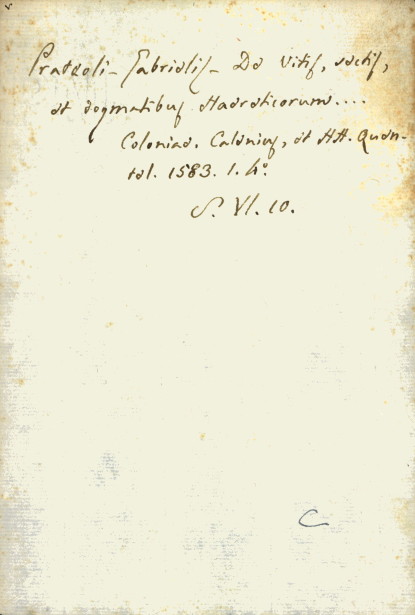 Prateoli – Gabrielis – De Vitis, sectis,
et dogmatibus Haereticorum....
Coloniae. Calenius, et HH. Quen-
tel. 1583. 1. 4°
S. VI. 10.
C